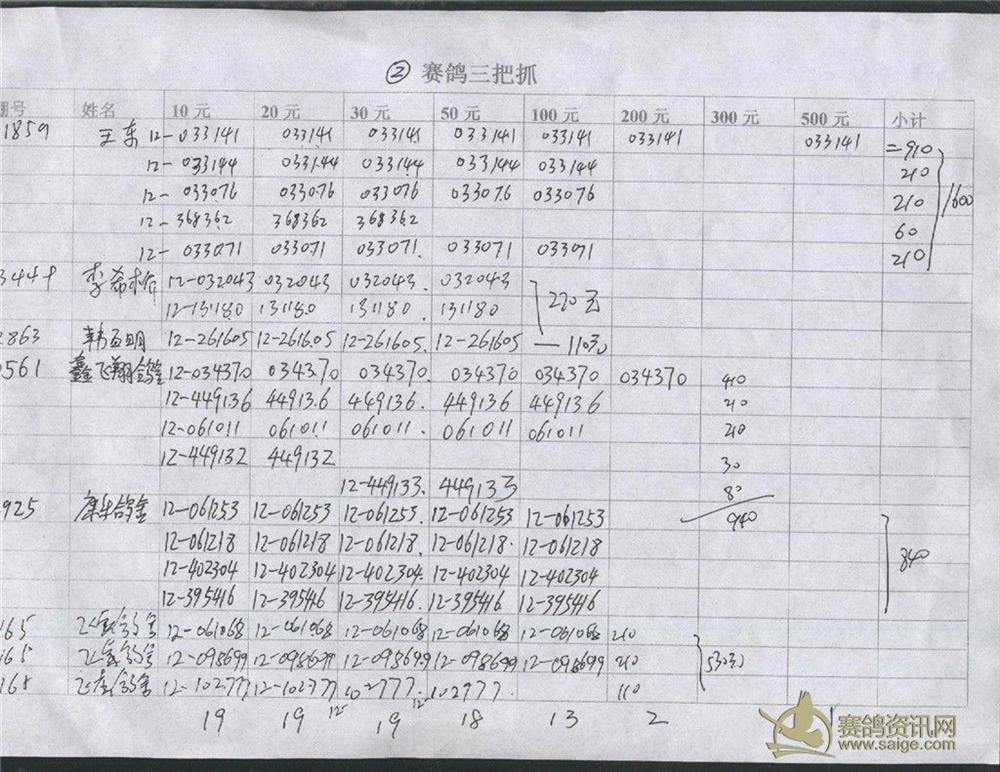 ② 赛鸽三把抓
棚号 姓名 10 元 20 元 30 元 50 元 100 元 200 元 300 元 500 元 小计
1859 王东 12-033141 033141 033141 033141 033141 033141 033141 =910
12-033144 033144 033144 033144 033144 210
12-033076 033076 033076 033076 033076 210 1600
12-368362 368362 368362 60
12-033071 033071 033071. 033071 033071 210
3444 李希 12-032043 032043 032043. 032043
12-131180 131180 131180. 131180 220元
2863 韩 明 12-261605 12-261605 12-261605. 12-261605 — 110元
0561 鑫飞翔鸽舍 12-034370 034370 034370. 034370 034370 034370 410
12-449136 449136 449136. 449136 449136 210
12-061011 061011 061011. 061011 061011 210
12-449132 449132 30
12-449133. 449133 80
925 鸽舍 12-061253 12-061253 12-061253. 12-061253 12-061253 940
12-061218 12-061218 12-061218. 12-061218. 12-061218
12-402304 12-402304 12-402304. 12-402304 12-402304 840
12-395416 12-395416 12-395416. 12-395416 12-395416
165 飞 鸽舍 12-061068 12-061068 12-061068 12-061068 12-061068 210
165 飞 鸽舍 12-098699 12-098699 12-098699 12-098699 12-098699 210 530元
165 飞 鸽舍 12-102777 12-102777 102777. 102777. 110
19 19 12- 19 12- 18 13 2 1
赛鸽资讯网
www.saige.com